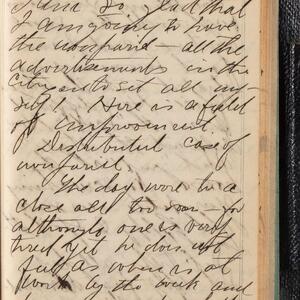 I am so glad that
I am going to have
the nonpareil – all the
advertisements in the
city en to set all my-
self! Here is a field
of improvement.
Distributed case of
nonpareil.
The day wore to a
close all too soon – for
although one is very
tired yet he does not
feel as when is at
work by the week and